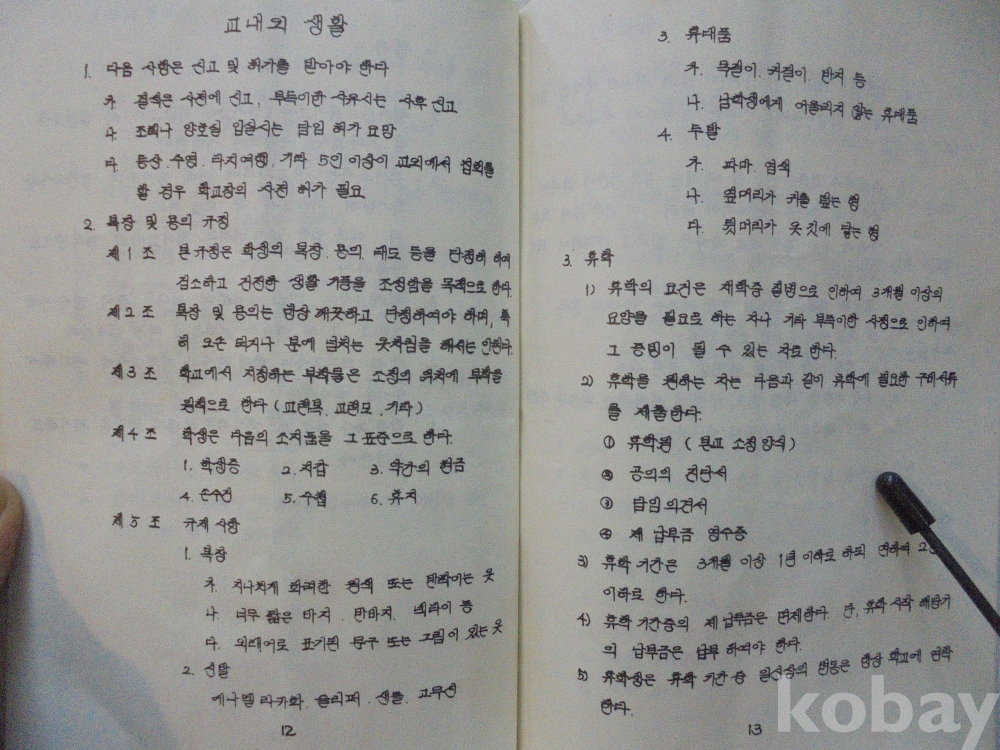 교내외 생활
1. 다음 사항은 신고 및 허가를 받아야 한다
가. 결석은 사전에 신고, 부득이한 사유시는 사후 신고
나. 조퇴나 양호실 입실시는 담임 허가 요망
다. 등산.수영.타지여행.기타 5인 이상이 교외에서 집회를
할 경우 학교장의 사전 허가 필요
2. 복장 및 용의 규정
제 1 조 본 규정은 학생의 복장. 용의. 태도 등을 단정히 하여
검소하고 건전한 생활 기풍을 조성함을 목적으로 한다.
제 2 조 복장 및 용의는 항상 깨끗하고 단정하여야 하며, 특
히 오손 되거나 분에 넘치는 옷차림을 해서는 안된다.
제 3 조 학교에서 지정하는 부착물은 소정의 위치에 부착을
원칙으로 한다 (교련복. 교련모. 기타)
제 4 조 학생은 다음의 소지품을 그 표준으로 한다.
1. 학생증 2. 지갑 3. 약간의 현금
4. 손수건 5. 수첩 6. 휴지
제 5 조 규제 사항
1. 복장
가. 지나치게 화려한 원색 또는 반짝이는 옷
나. 너무 짧은 바지. 반바지. 넥타이 등
다. 외래어로 표기된 문구 또는 그림이 있는 옷
2. 신발
에나멜 라카화. 슬리퍼. 샌들. 고무신
12
3. 휴대품
가. 목걸이. 귀걸이. 반지 등
나. 남학생에게 어울리지 않는 휴대품
4. 두발
가. 파마. 염색
나. 옆머리가 귀를 덮는 형
다. 뒷머리가 옷깃에 닿는 형
3. 휴학
1) 휴학의 요건은 재학중 질병으로 인하여 3개월 이상의
요양을 필요로 하는 자나 기타 부득이한 사정으로 인하여
그 증빙이 될 수 있는 자로 한다.
2) 휴학을 원하는 자는 다음과 같이 휴학에 필요한 구비서류
를 제출한다.
① 휴학원 ( 본교 소정양식)
② 공의의 진단서
③ 담임 의견서
④ 제 납부금 영수증
3) 휴학 기간은 3개월 이상 1년 이하로 하되 연하여 2년
이하로 한다.
4) 휴학 기간중의 제 납부금은 면제한다. 단, 휴학 시작 해당기
의 납부금은 납부 하여야 한다.
5) 휴학생은 휴학 기간 중 일신상의 변동은 항상 학교에 연락
한다.
13
kobay